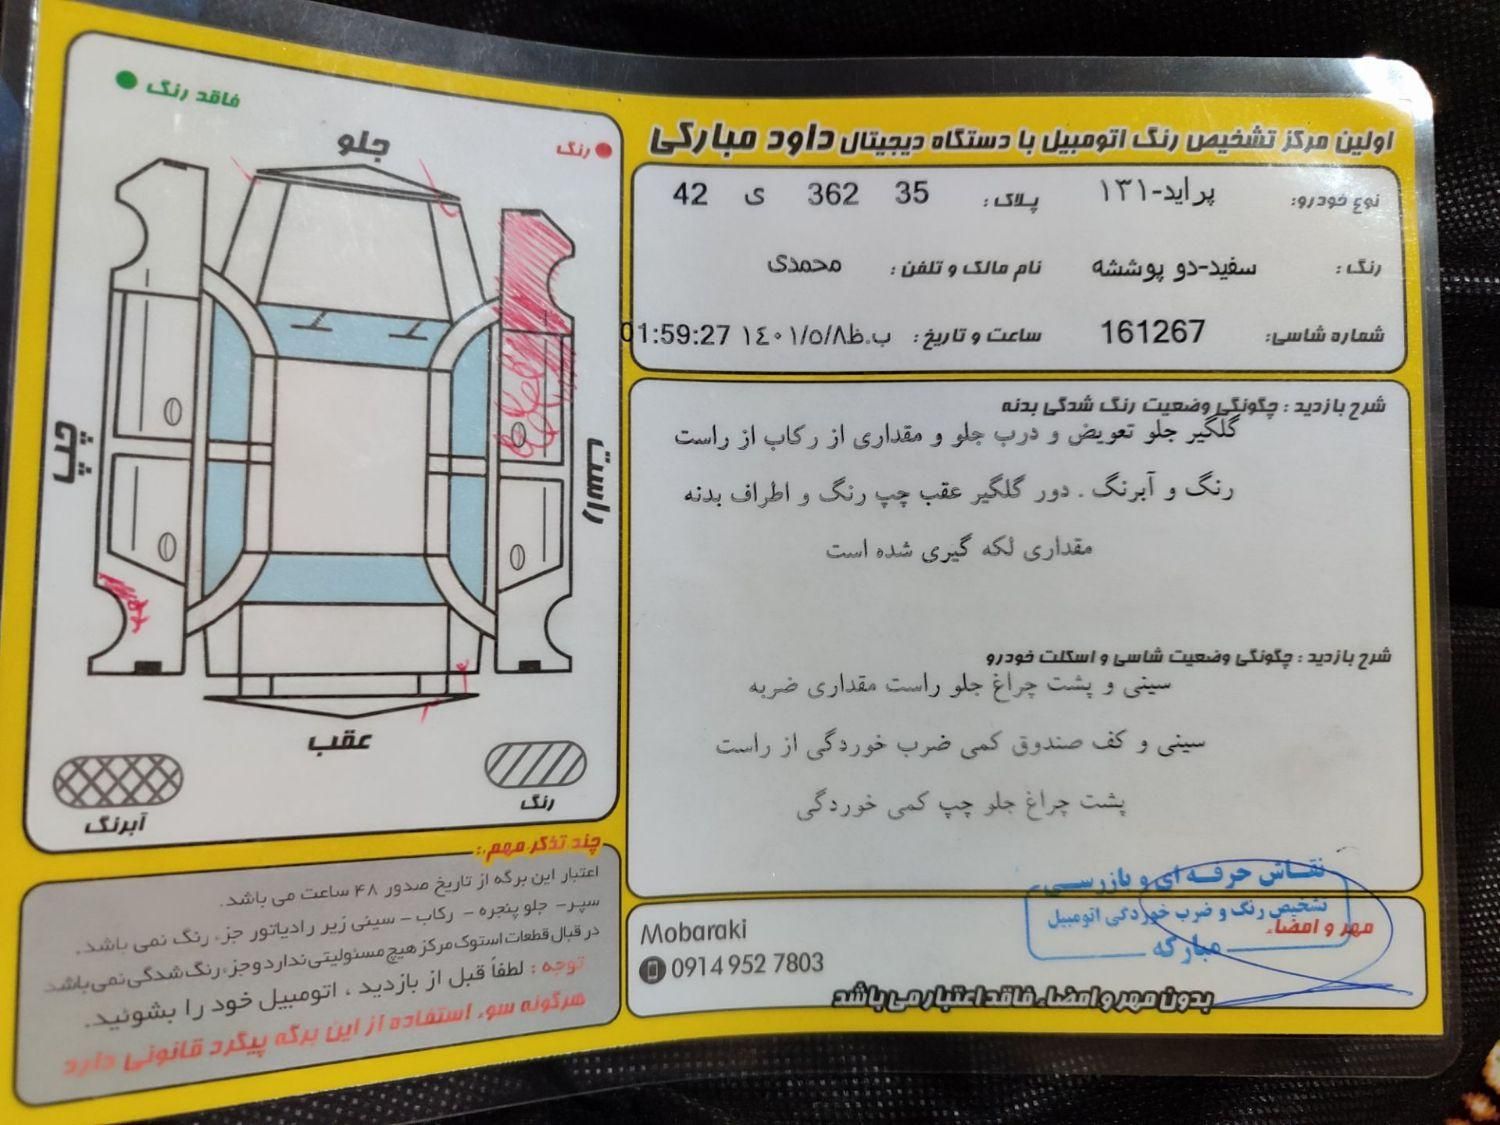 اولین مرکز تشخیص رنگ اتومبیل با دستگاه دیجیتال داود مبارکی
نوع خودرو: پراید-۱۳۱ پلاک: 35 362 ی 42
رنگ: سفید-دو پوششه نام مالک و تلفن: محمدی
شماره شاسی: 161267 ساعت و تاریخ: 01:59:27 ب.ظ ۱٤۰۱/۵/۸
شرح بازدید: چگونگی وضعیت رنگ شدگی بدنه
گلگیر جلو تعویض و درب جلو و مقداری از رکاب از راست
رنگ و آبرنگ . دور گلگیر عقب چپ رنگ و اطراف بدنه
مقداری لکه گیری شده است
شرح بازدید: چگونگی وضعیت شاسی و اسکلت خودرو
سینی و پشت چراغ جلو راست مقداری ضربه
سینی و کف صندوق کمی ضرب خوردگی از راست
پشت چراغ جلو چپ کمی خوردگی
نقاش حرفه ای و بازرسی
تشخیص رنگ و ضرب خوردگی اتومبیل
مبارکه
مهر و امضاء
Mobaraki
0914 952 7803
بدون مهر و امضاء فاقد اعتبار می باشد
فاقد رنگ
رنگ
جلو
چپ
راست
عقب
رنگ
آبرنگ
چند تذکر مهم:
اعتبار این برگه از تاریخ صدور ۴۸ ساعت می باشد.
سپر- جلو پنجره - رکاب - سینی زیر رادیاتور جزء رنگ نمی باشد.
در قبال قطعات استوک مرکز هیچ مسئولیتی ندارد و جزء رنگ شدگی نمی باشد
توجه: لطفاً قبل از بازدید ، اتومبیل خود را بشوئید.
هرگونه سوء استفاده از این برگه پیگرد قانونی دارد